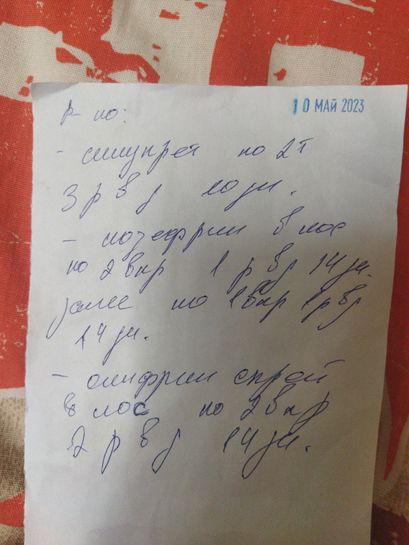 10 МАЙ 2023
Р-но:
- синупрет по 2т
3 р в д 10 дн.
- нозефрин в нос
по 2 впр 1 р в д 14 дн.
далее по 1 впр 1 р в д
14 дн.
- олифрин спрей
в нос по 2 впр
2 р в д 14 дн.